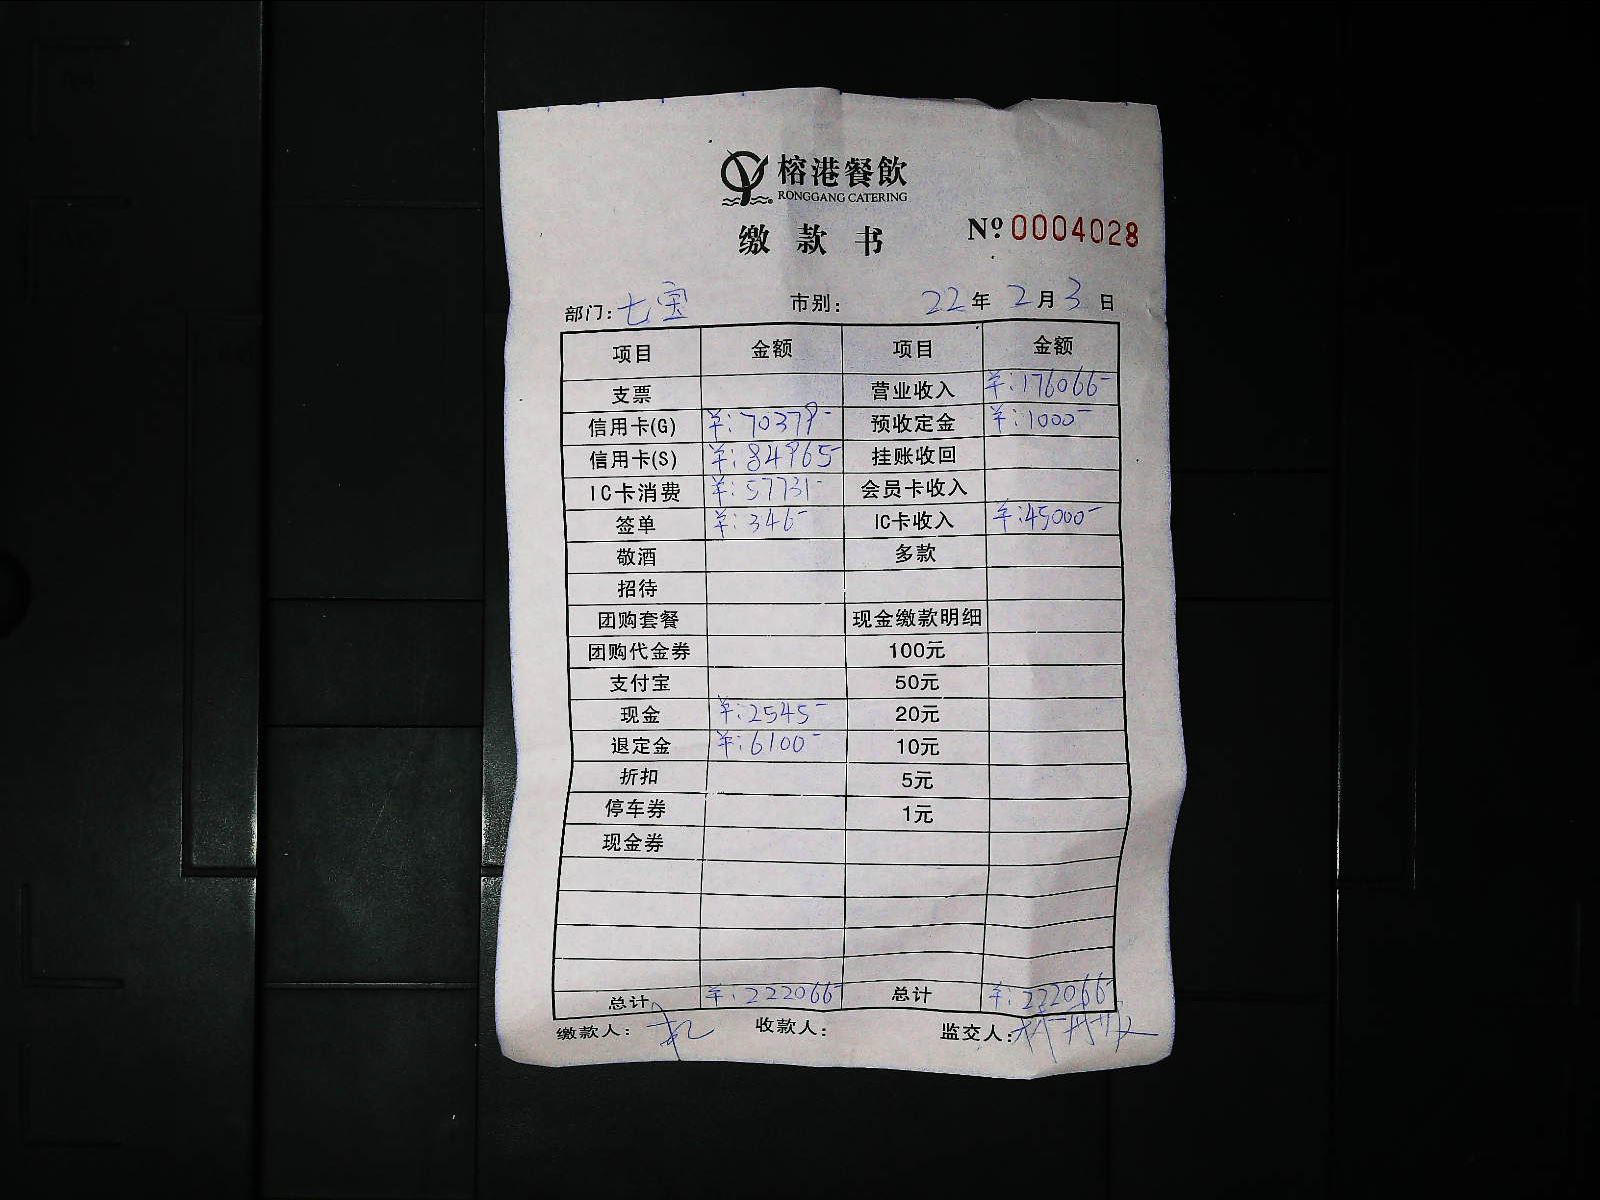 榕港餐飲
RONGGANG CATERING
缴款书 Nº 0004028
部门:七宝 市别: 22年2月3日
项目 金额 项目 金额
支票 营业收入 ¥:176066-
信用卡(G) ¥:70379- 预收定金 ¥:1000-
信用卡(S) ¥:84965- 挂账收回
IC卡消费 ¥:57731- 会员卡收入
签单 ¥:346- IC卡收入 ¥:45000-
敬酒 多款
招待
团购套餐 现金缴款明细
团购代金券 100元
支付宝 50元
现金 ¥:2545- 20元
退定金 ¥:6100- 10元
折扣 5元
停车券 1元
现金券
总计 ¥:222066- 总计 ¥:222066-
缴款人: 收款人: 监交人: